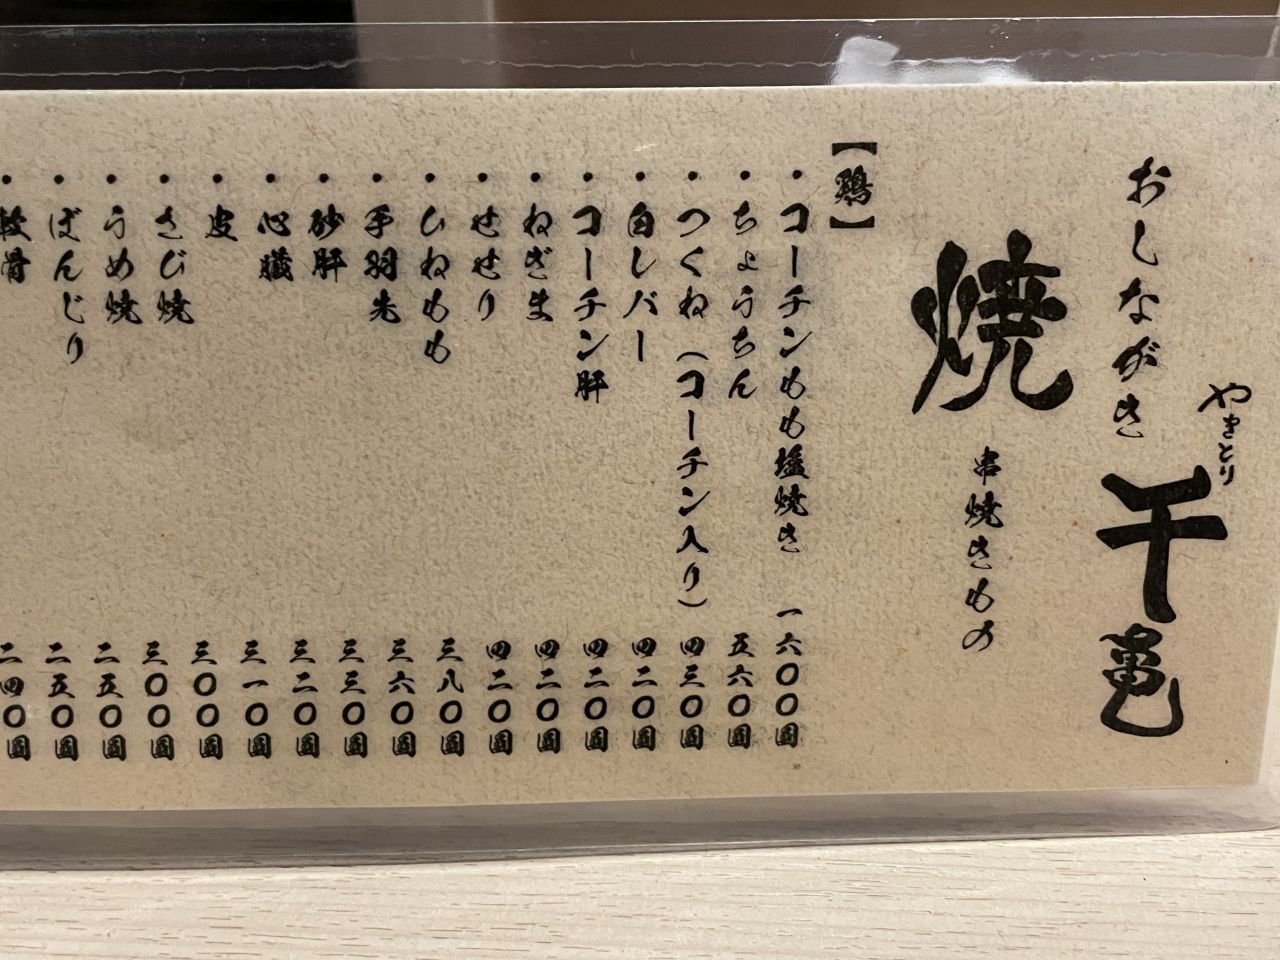 やきとり
千亀
おしながき
焼
串焼きもの
【鶏】
・コーチンもも塩焼き 一六〇〇圓
・ちょうちん 五六〇圓
・つくね（コーチン入り） 四三〇圓
・白レバー 四二〇圓
・コーチン肝 四二〇圓
・ねぎま 四二〇圓
・せせり 四二〇圓
・ひねもも 三八〇圓
・手羽先 三六〇圓
・砂肝 三三〇圓
・心臓 三二〇圓
・皮 三一〇圓
・さび焼 三〇〇圓
・うめ焼 三〇〇圓
・ぼんじり 二五〇圓
・軟骨 二五〇圓
二四〇圓